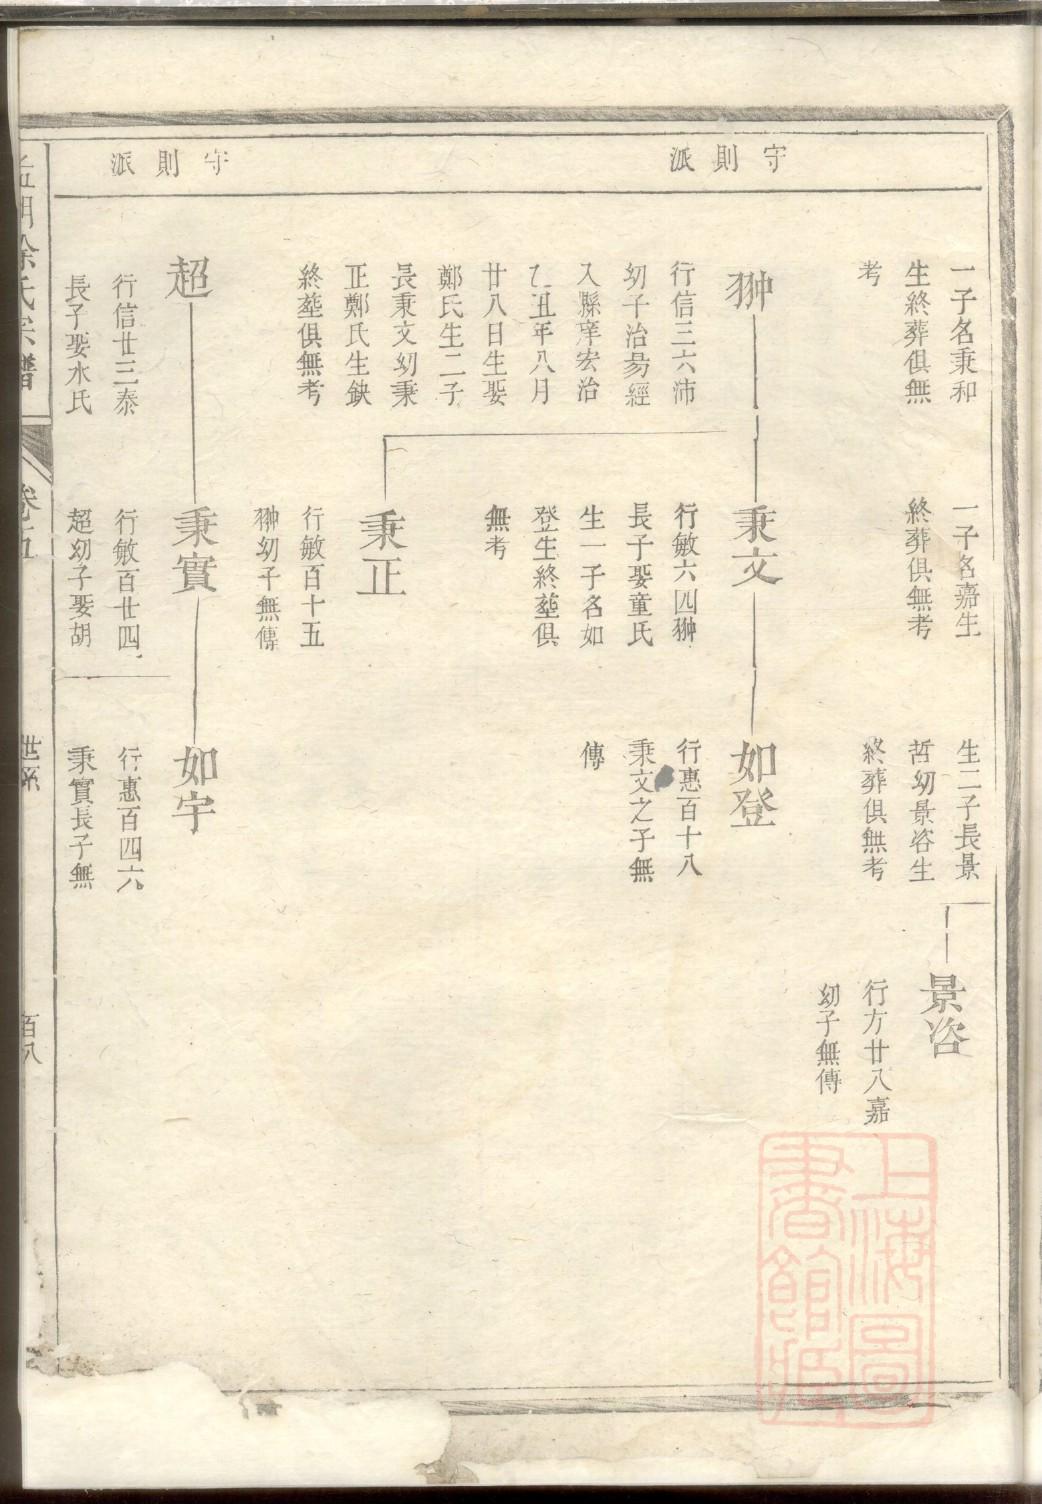 守則派
守則派
一子名秉和
生終葬俱無
考
翀
行信三六沛
幼子治易經
入縣庠宏治
乙丑年八月
廿八日生娶
鄭氏生二子
長秉文幼秉
正鄭氏生鈌
終塟俱無考
超
行信廿三泰
長子娶水氏
一子名嘉生
終葬俱無考
秉文
行敏六四翀
長子娶童氏
生一子名如
登生終塟俱
無考
秉正
行敏百十五
翀幼子無傳
秉實
行敏百廿四
超幼子娶胡
生二子長景
哲幼景咨生
終葬俱無考
如登
行惠百十八
秉文之子無
傳
如宇
行惠百四六
秉實長子無
景咨
行方廿八嘉
幼子無傳
徐氏宗譜
卷五
世系
百八
上海圖
書館藏